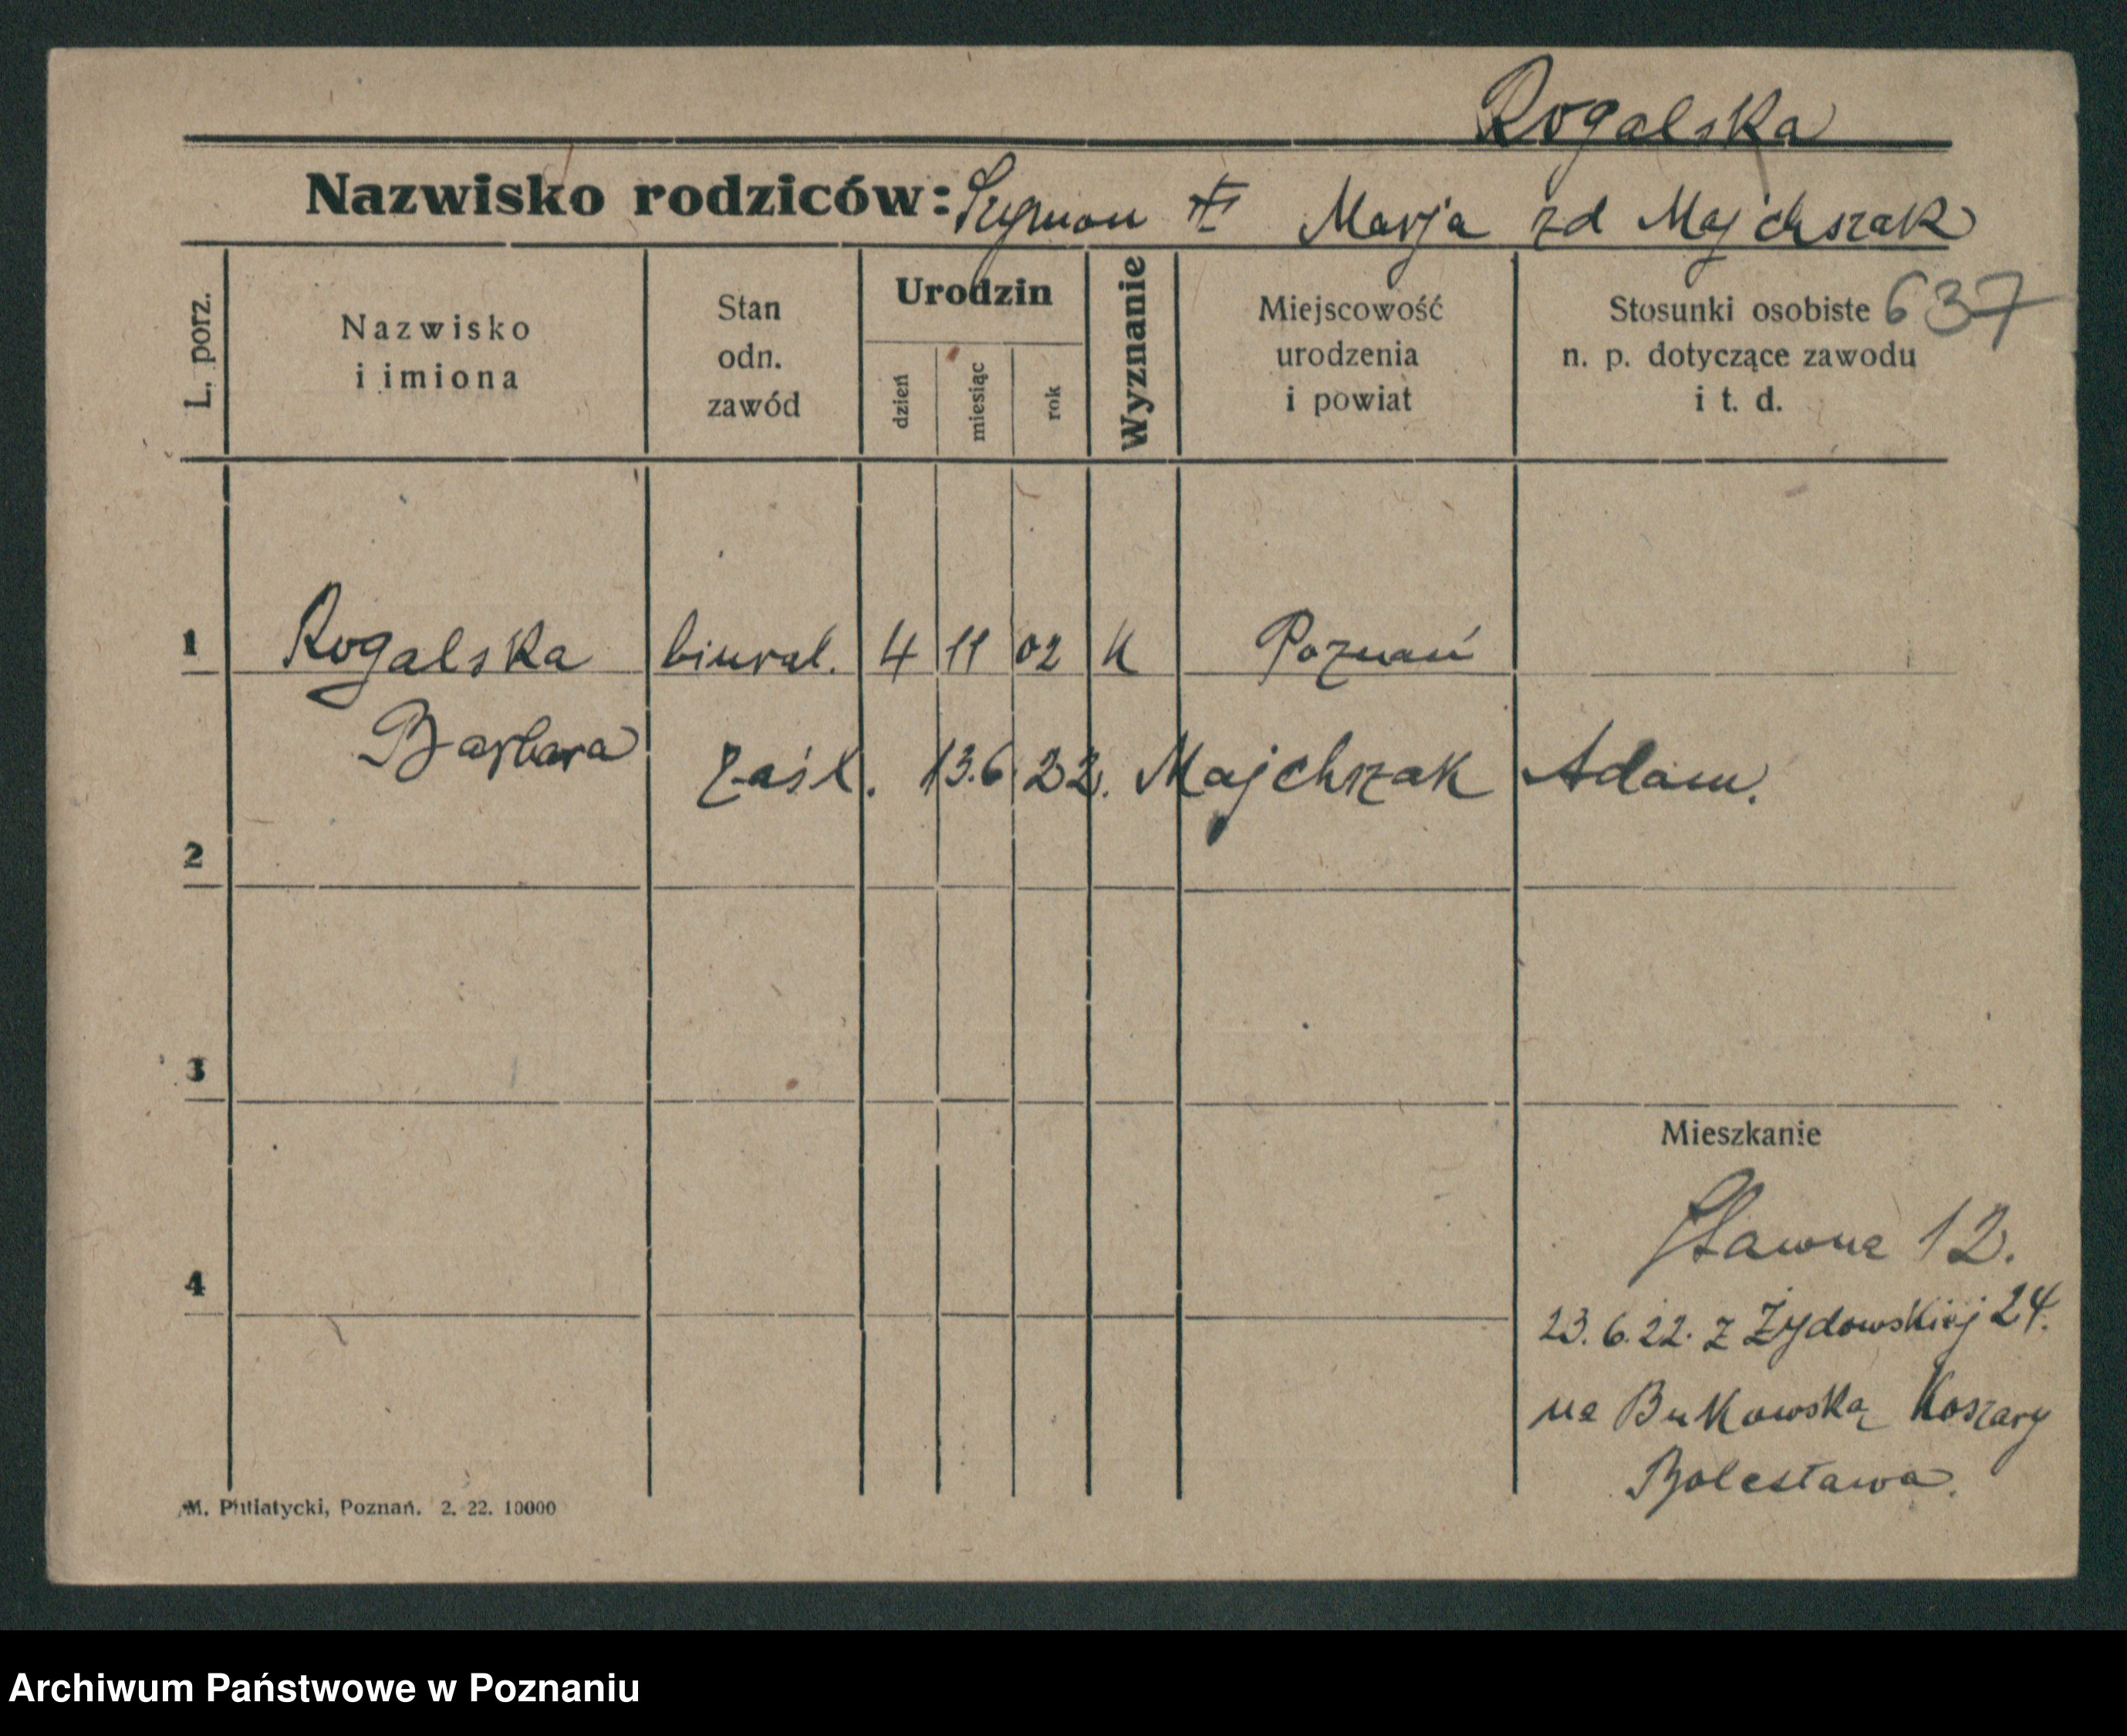 Rogalska
Nazwisko rodziców: Szymon Marja zd Majchszak
637
L. porz.
Nazwisko
i imiona
Stan
odn.
zawód
Urodzin
dzień
miesiąc
rok
Wyznanie
Miejscowość
urodzenia
i powiat
Stosunki osobiste
n. p. dotyczące zawodu
i t. d.
1 Rogalska biural. 4 11 02 k Poznań
Barbara
zaśl. 13.6.22. Majchrzak Adam.
2
3
4
Mieszkanie
Sławna 12.
23.6.22. z Żydowskiej 24.
na Bukowską Koszary
Bolesława.
M. Putiatycki, Poznań. 2. 22. 10000
Archiwum Państwowe w Poznaniu